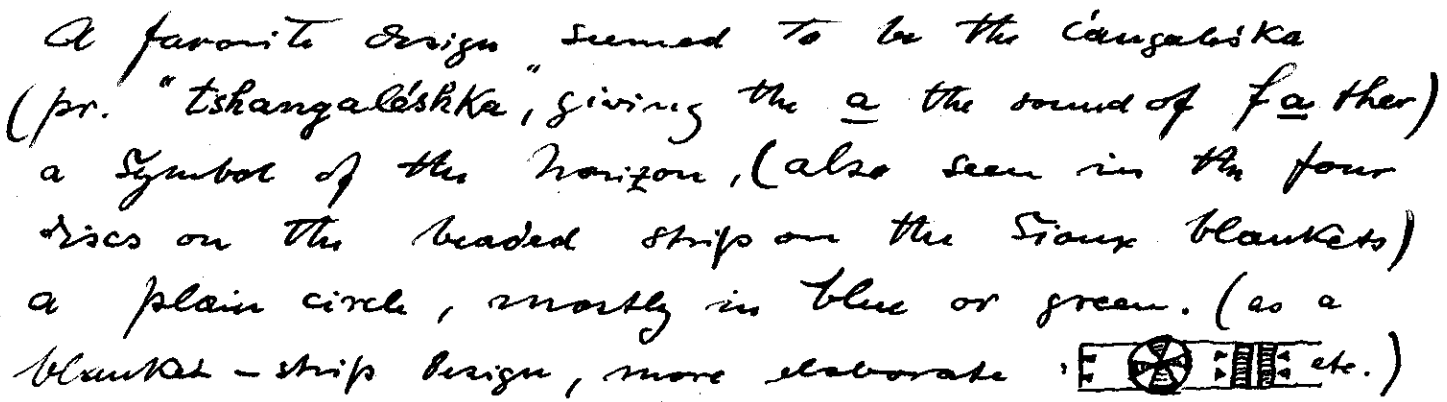 A favorite design seemed to be the ćangaléśka
(pr. "tshangaléshka", giving the a the sound of father)
a symbol of the horizon, (also seen in the four
discs on the beaded strip on the Sioux blankets)
a plain circle, mostly in blue or green. (as a
blanket-strip design, more elaborate : etc.)